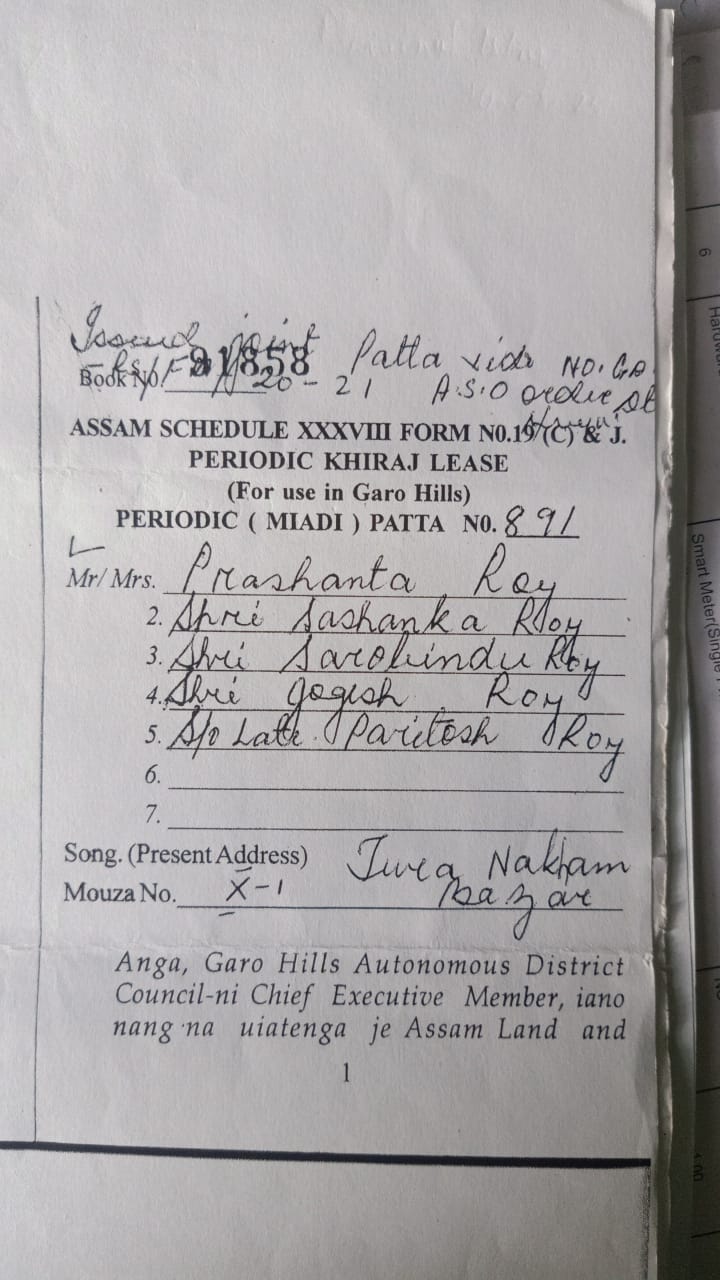 Issued joint Patta vide NO. GA
Book No. 91858 20-21 A.S.O order dt
ASSAM SCHEDULE XXXVIII FORM N0.19 (C) & J.
PERIODIC KHIRAJ LEASE
(For use in Garo Hills)
PERIODIC ( MIADI ) PATTA N0. 891
Mr/ Mrs. Prashanta Roy
2. Shri Sashanka Roy
3. Shri Sarobindu Roy
4. Shri Jogesh Roy
5. S/o Late Paritosh Roy
6.
7.
Song. (Present Address) Tura Nakham
Mouza No. X-1 bazar
Anga, Garo Hills Autonomous District
Council-ni Chief Executive Member, iano
nang·na uiatenga je Assam Land and
1
6
Smart Meter(Single